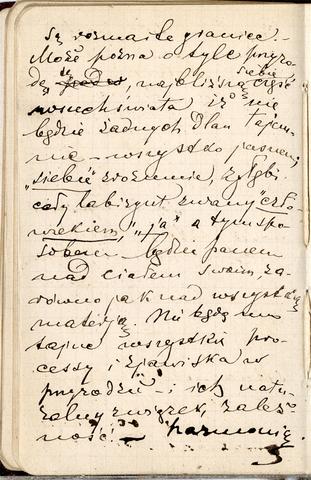 Są rozmaite granice. –
Może pozna o tyle przyro-
dę
siebie
najbliższą część
wszechświata iż nie
będzie żadnych dlań tajem-
nic – wszystko pojmie,
"siebie" zrozumie, zgłębi
cały labirynt zwany "czło-
wiekiem", "ja" a tym spo-
sobem będzie panem
nad ciałem swoim za-
równo jak nad wszystką
materją. Nie będą mu
tajne wszystkie pro-
cessy i zjawiska w
przyrodzie – i ich natu-
ralny związek, zależ-
ność – harmonię